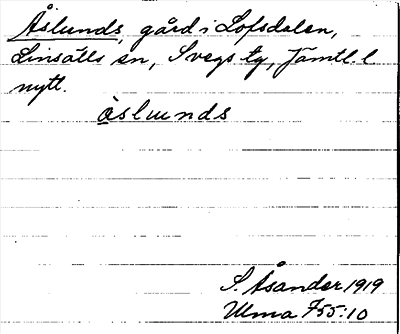 Åslunds, gård i Lofsdalen,
Linsälls sn, Svegs tg, Jämtl. l
nytt.
òslunds
S. Åsander 1919
Ulma 755:10